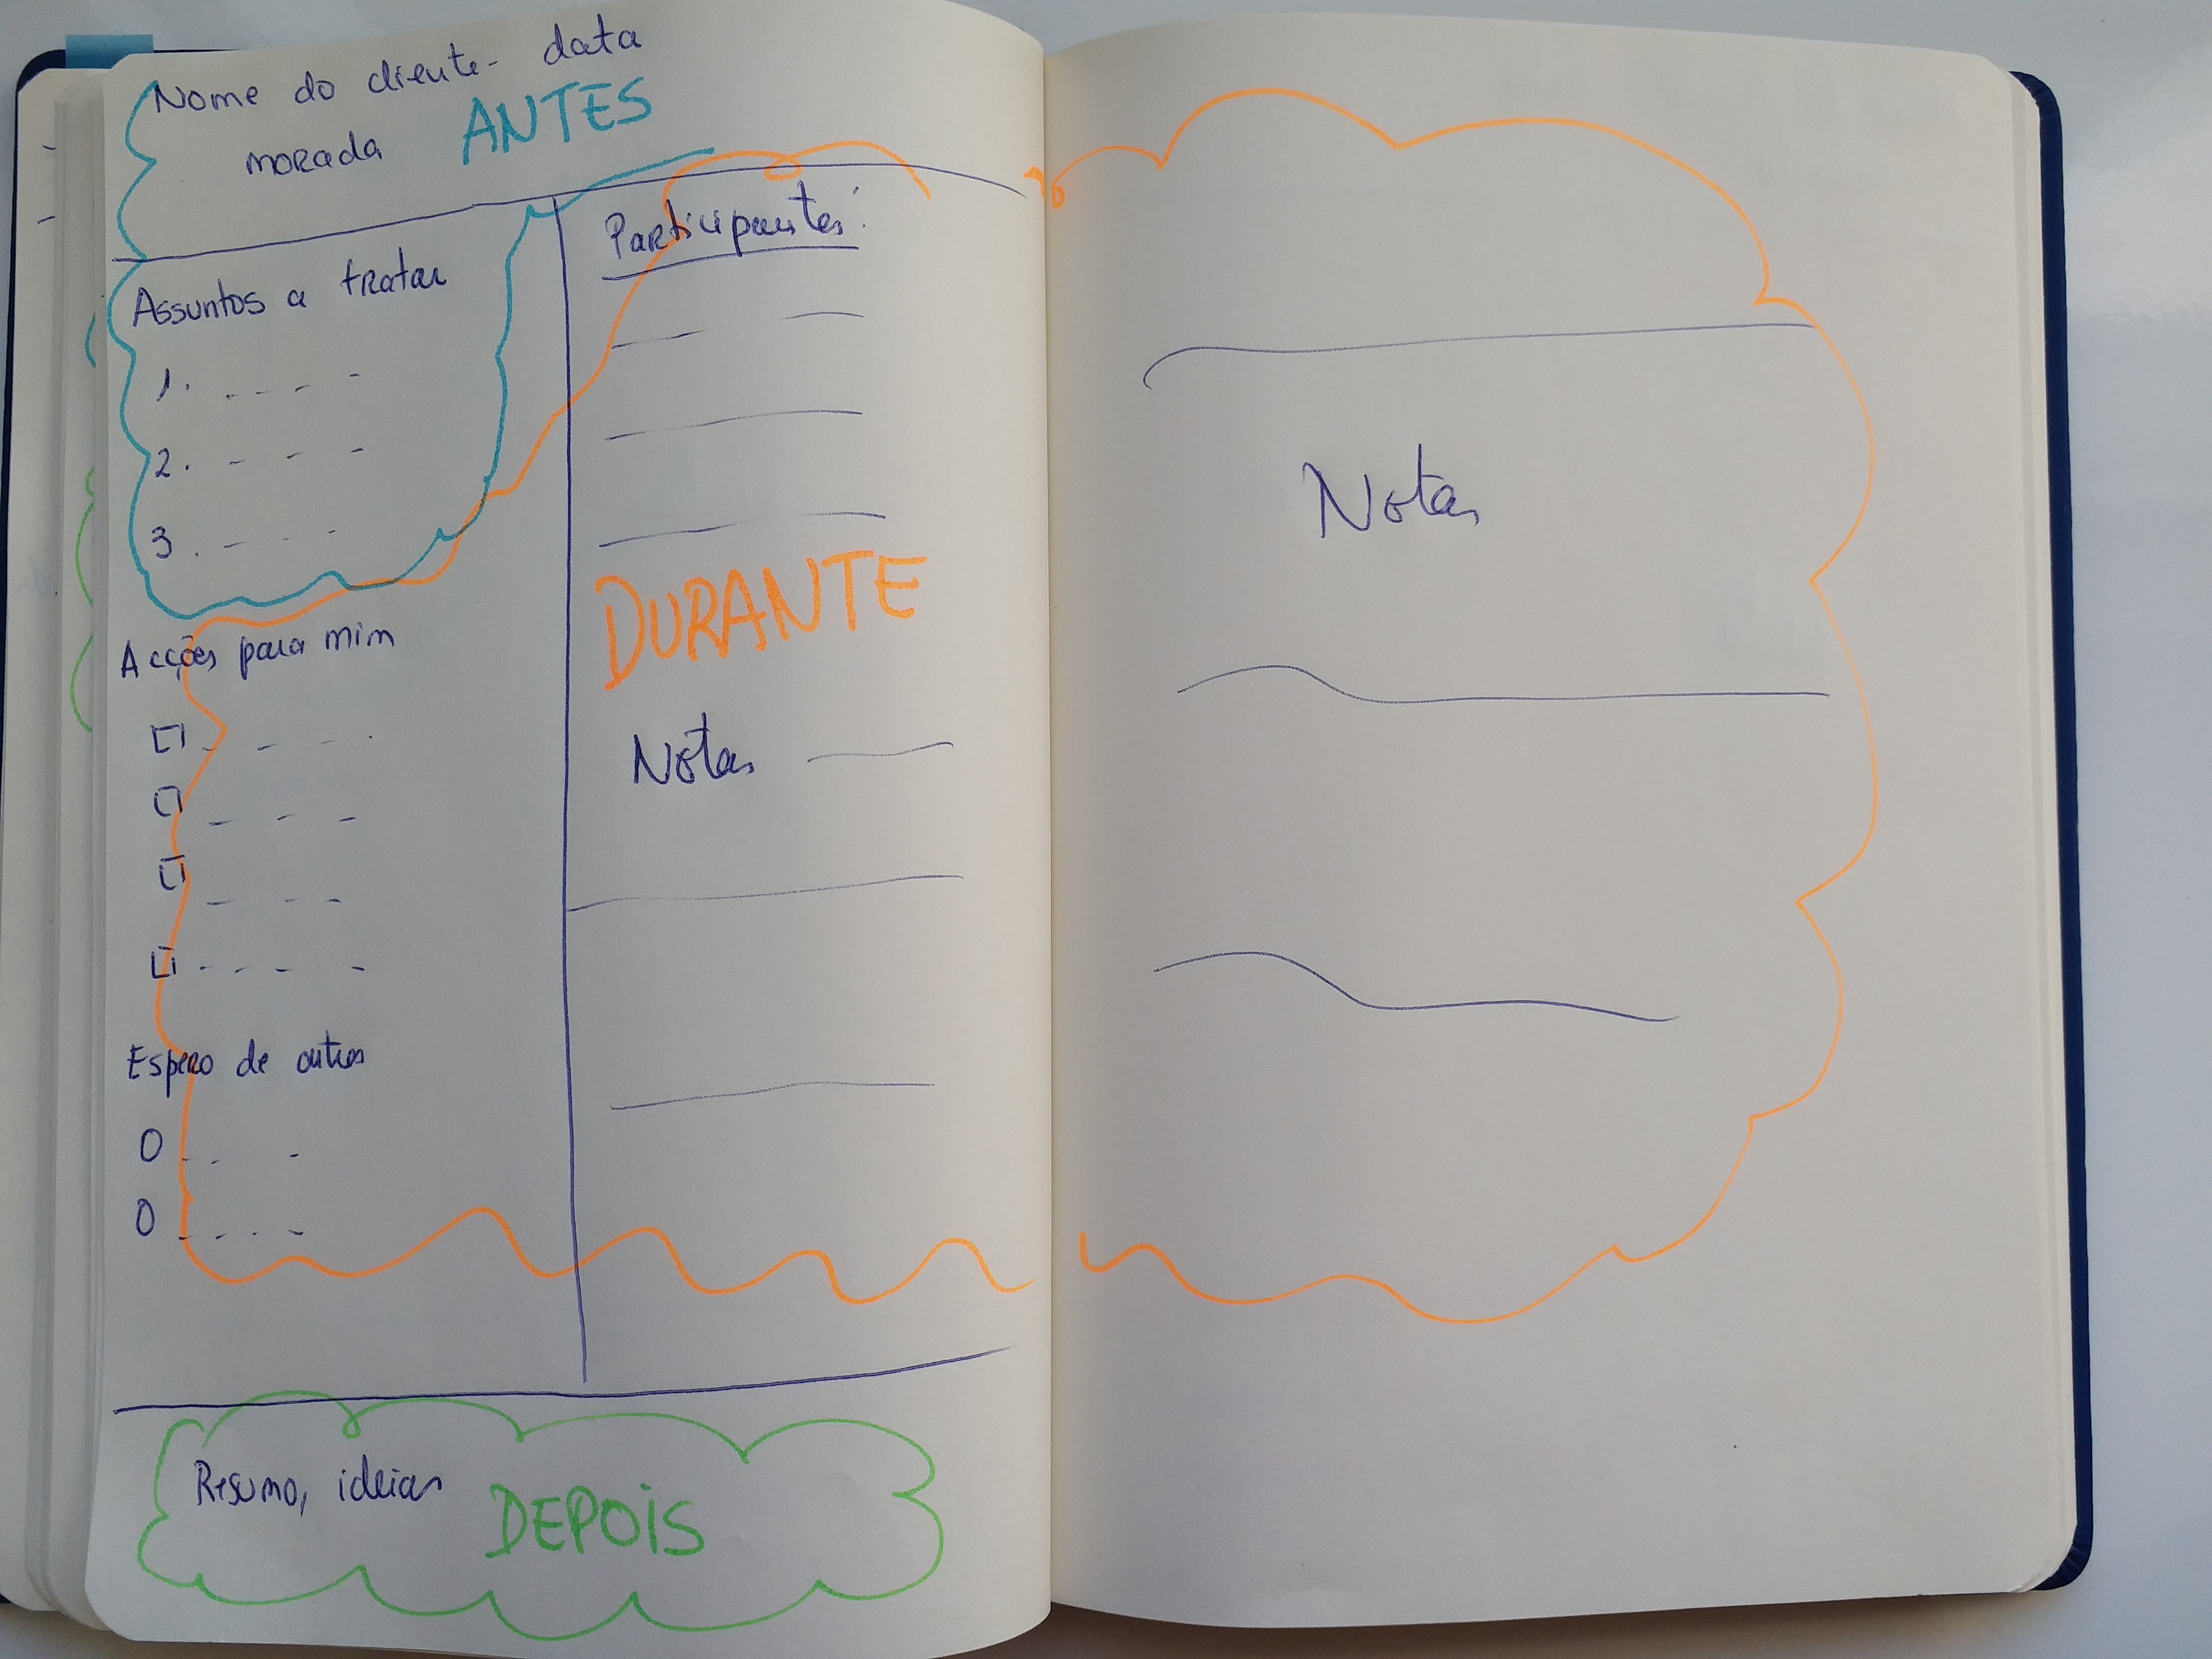 Nome do cliente - data
morada ANTES
Assuntos a tratar
1.
2.
3.
Acções para mim
Espero de outros
Participantes:
DURANTE
Notas
Resumo, ideias DEPOIS
Notas